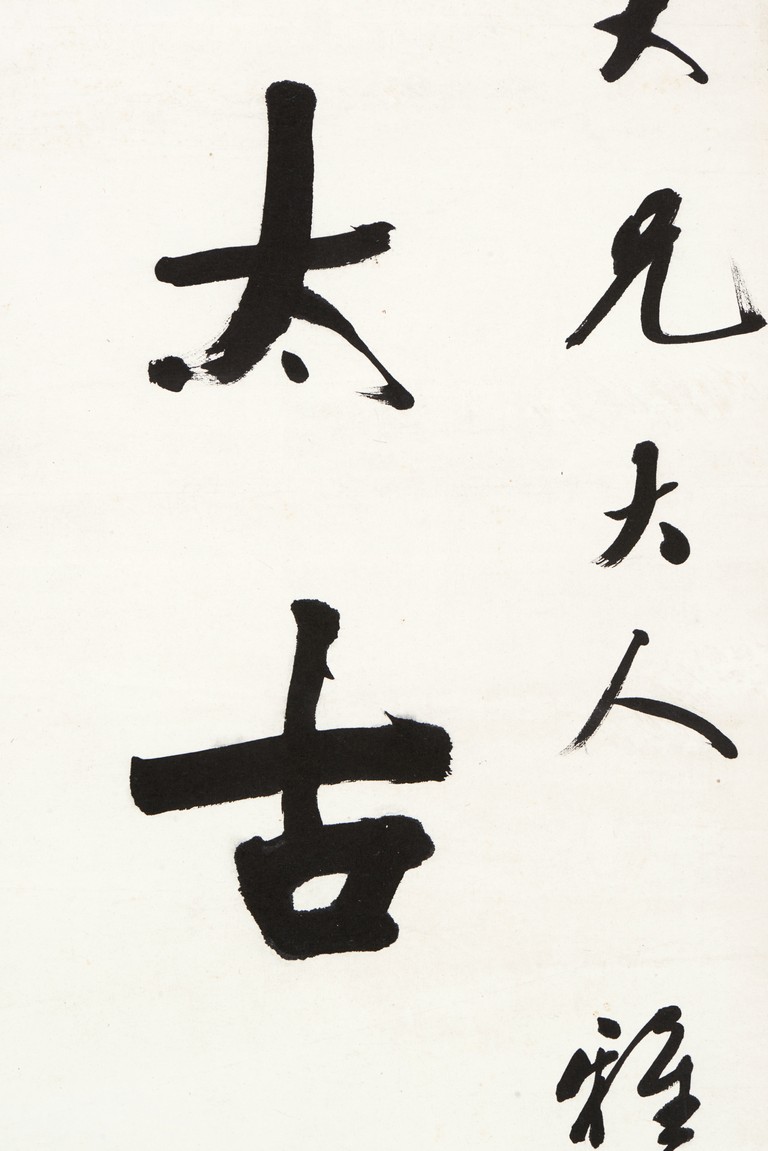 兄大人雅
太古